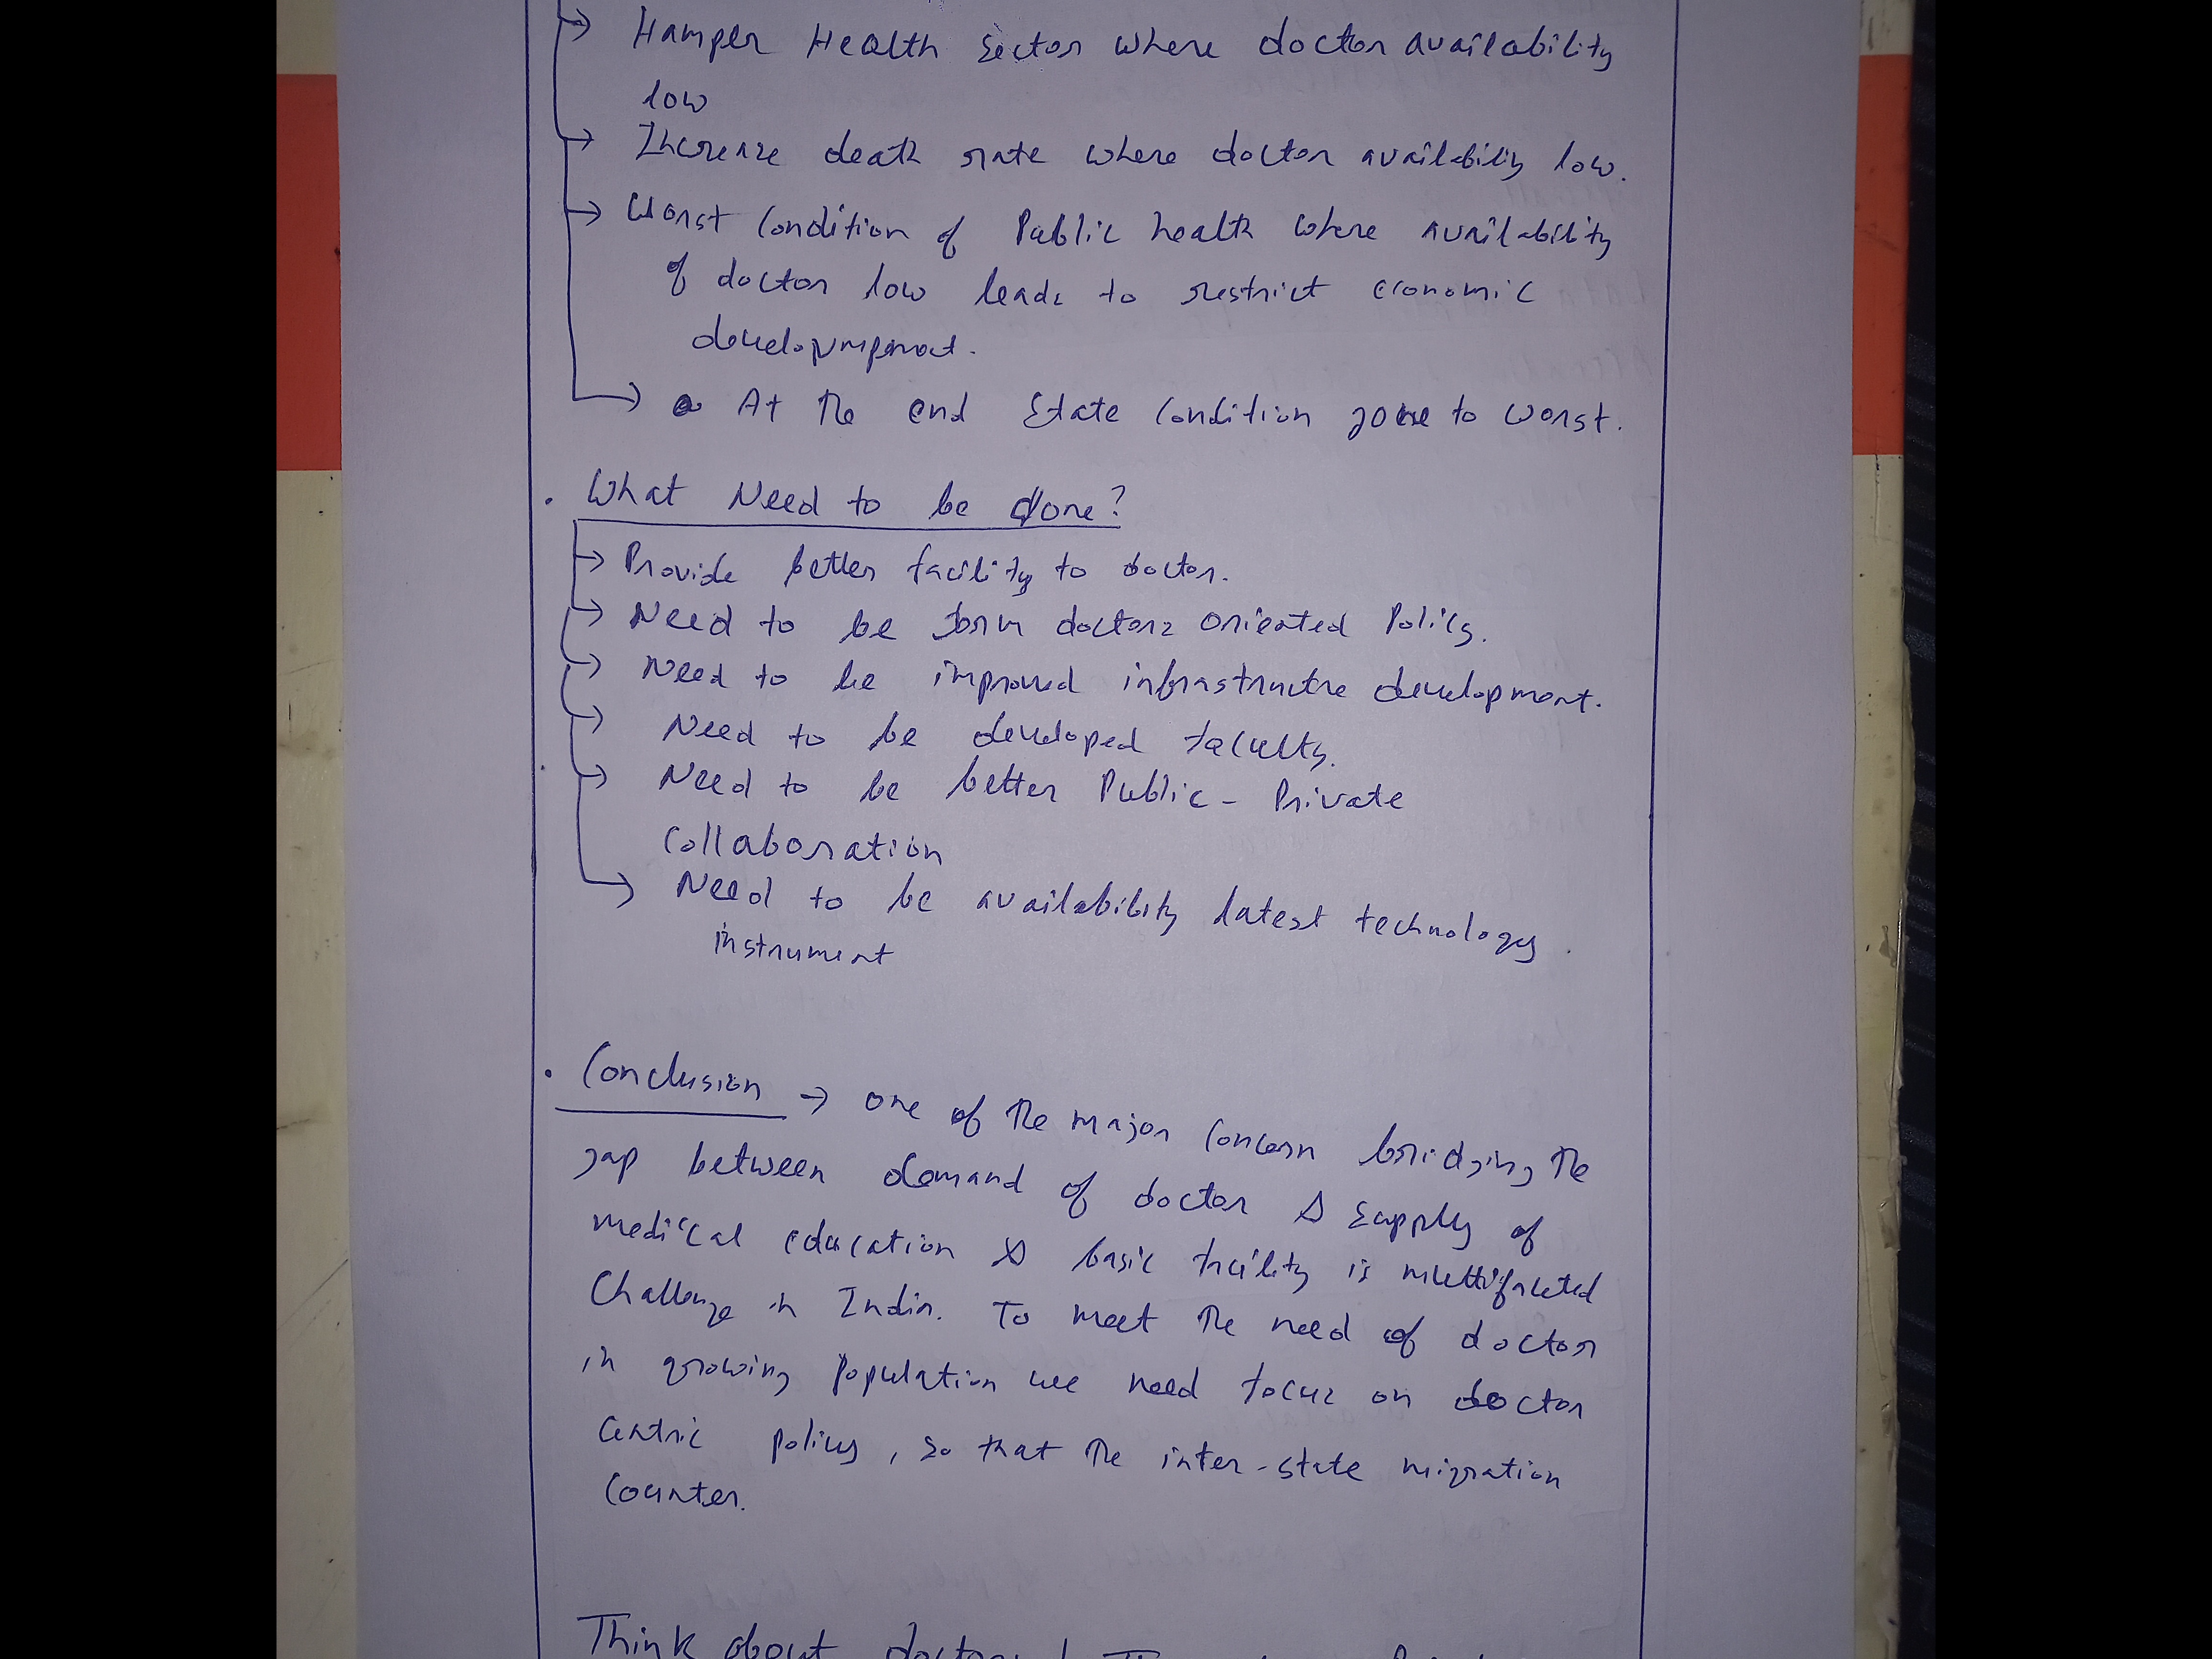 → Hamper Health Sector where doctor availability
low
→ Increase death rate where doctor availability low.
→ Worst Condition of Public health where availability
of doctor low leads to restrict economic
→ At the end State Condition gone to worst.
. What Need to be done?
→ Provide better facility to doctor.
→ Need to be form doctors oriented Policy.
→ Need to be improved infrastructre development.
→ Need to be developed faculty.
→ Need to be better Public - Private
Collaboration
→ Need to be availability latest technology.
instrument
. Conclusion → one of the major concern bridging the
gap between demand of doctor & supply of
medical education & basic facility is multifaceted
Challenge in India. To meet the need of doctor
in growing population we need focus on doctor
centric policy, so that the inter-state migration
counter.
Think about doctors